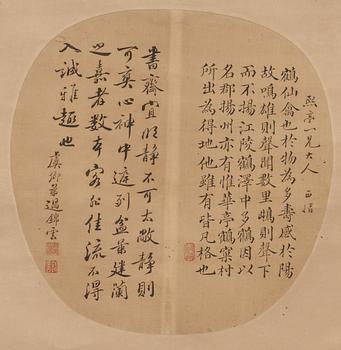 熙亭一兄大人 正楷
鶴仙禽也於物為多壽感於陽
故鳴雄則聲聞數里雌則聲下
而不揚江陵鶴澤中多鶴因以
名郡揚州亦有惟華亭鶴窠村
所出為得地他雖有皆凡格也
書齋宜明靜不可太敞靜則
可爽心神中遮列盆景建蘭
之嘉者數本
佳流不得
入誠雅趣也
虞卿弟過錦雲